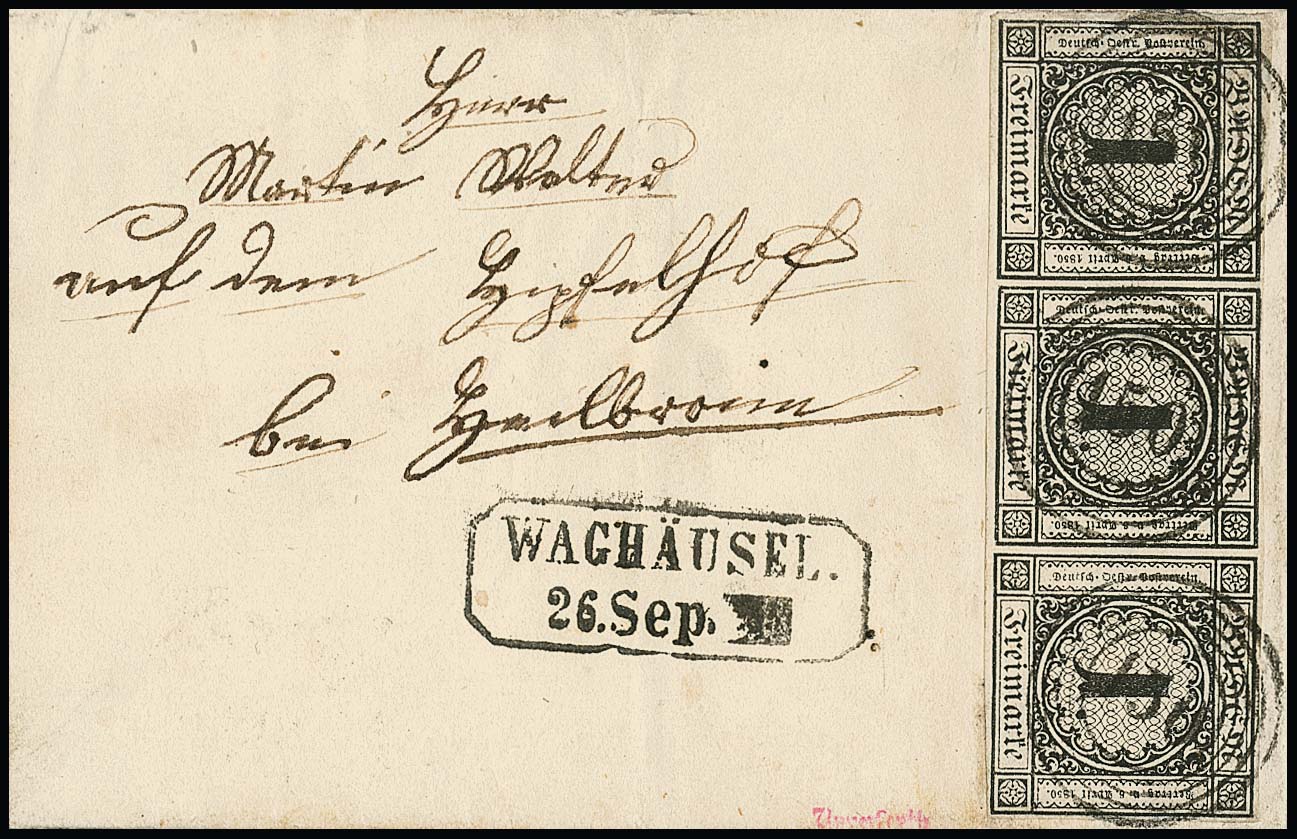 Herr
Martin Walter
auf dem Hipfelhof
bei Heilbronn
WAGHÄUSEL.
26. Sep.
Deutsch-Oestr. Postverein.
Freimarke
1
BADEN
Vertrag v. 6 April 1850.
Deutsch-Oestr. Postverein.
Freimarke
1
BADEN
Vertrag v. 6 April 1850.
Deutsch-Oestr. Postverein.
Freimarke
1
BADEN
Vertrag v. 6 April 1850.